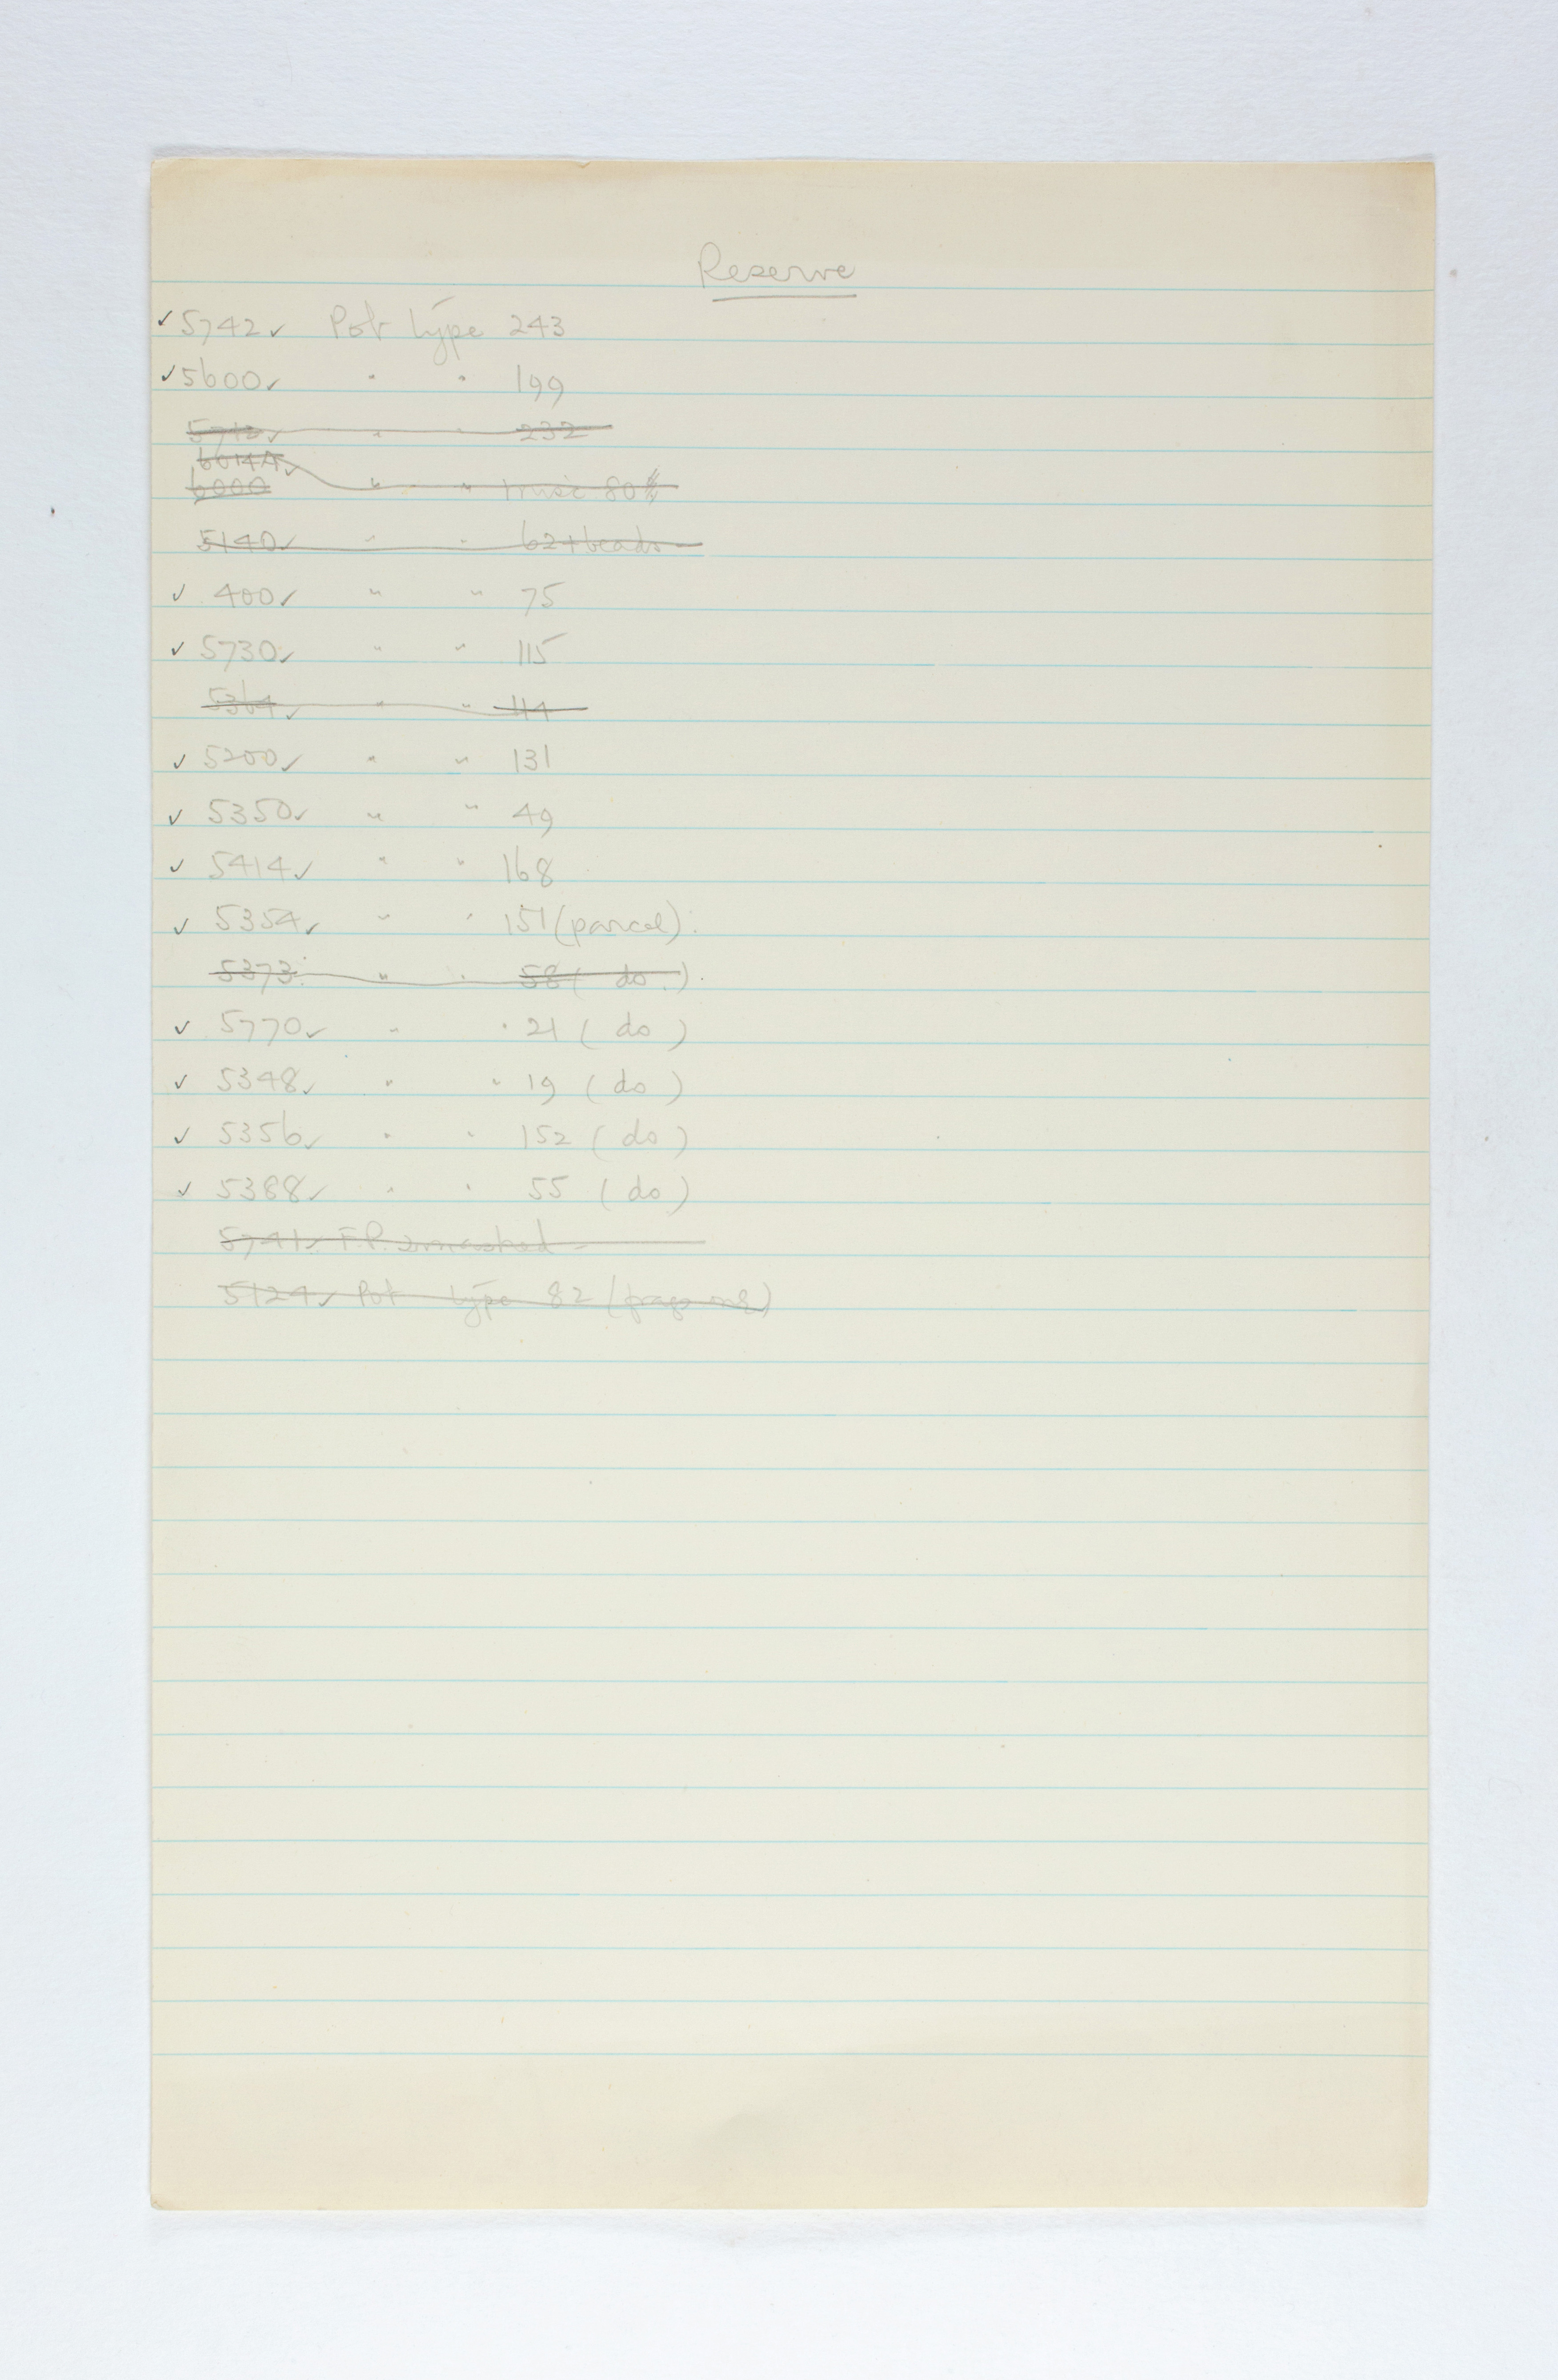 Reserve
✓ 5742 ✓ Pot type 243
✓ 5600 ✓ " " 199
5712 ✓ " " 232
6014A ✓
6000 " " 80
5140 ✓ " " 62 + beads
✓ 400 ✓ " " 75
✓ 5730 ✓ " " 115
5364 ✓ " " 114
✓ 5200 ✓ " " 131
✓ 5350 ✓ " " 49
✓ 5414 ✓ " " 168
✓ 5354 ✓ " " 151 (parcel).
5373 " " 58 ( do. ).
✓ 5770 ✓ " " 21 ( do )
✓ 5348 ✓ " " 19 ( do )
✓ 5356 ✓ " " 152 ( do )
✓ 5388 ✓ " " 55 ( do )
5741 ✓ F.P. smashed
5124 ✓ Pot type 82